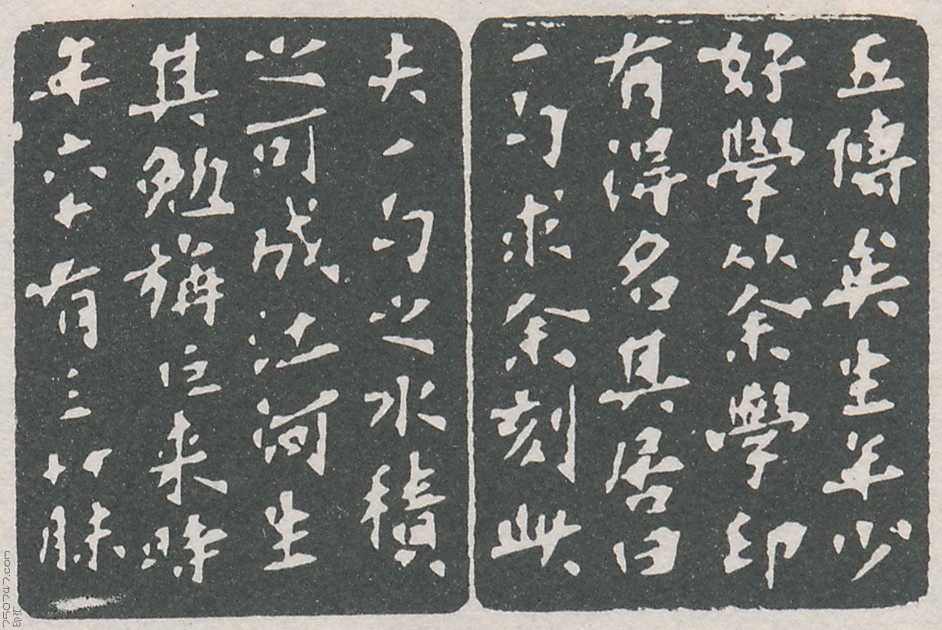 丘傳吳生年少
好學从余學印
有得名其居曰
一勺求余刻此
夫一勺之水積
之可成江河生
其勉旃巨来時
年六十有三
750747.com